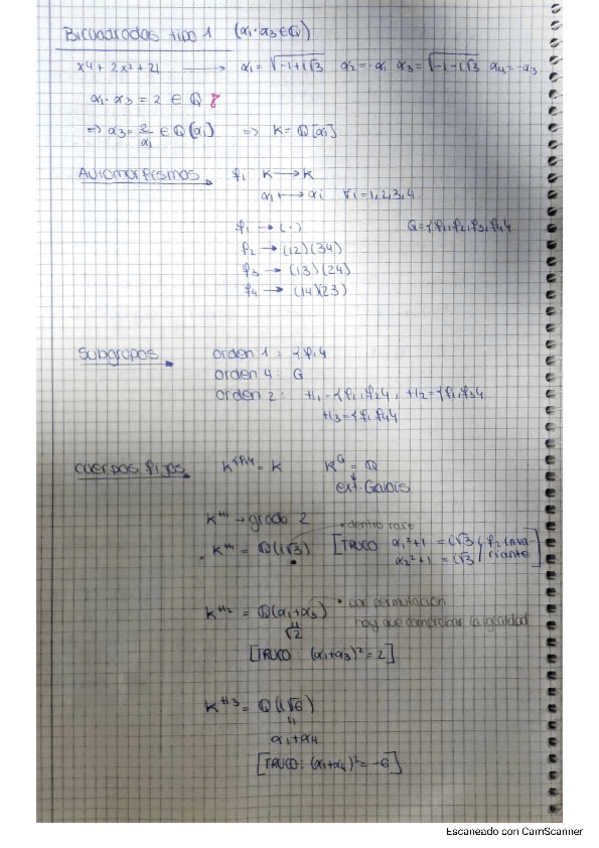 Bicuadradas tipo 1 (α₁·α₃∈ℚ)
x4 + 2x² + 4 → α₁ = √-1+i√3 α₂ = -α₁ α₃ = √-1-i√3 α₄ = -α₃
α₁·α₃ = 2 ∈ ℚ
⇒ α₃ = 2/α₁ ∈ ℚ[α₁] ⇒ K = ℚ[α₁]
Automorfismos φᵢ K → K
α₁ ↦ αᵢ ∀i = 1,2,3,4
φ₁ → (·) G = {φ₁,φ₂,φ₃,φ₄}
φ₂ → (12)(34)
φ₃ → (13)(24)
φ₄ → (14)(23)
Subgrupos orden 1: {φ₁}
orden 4: G
orden 2: H₁ = {φ₁,φ₂}, H₂ = {φ₁,φ₃}
H₃ = {φ₁,φ₄}
Cuerpos fijos K^{φ₁} = K K^G = ℚ
ext. Galois
K^H₁ → grado 2
• dentro raíz
K^H₁ = ℚ(i√3) [TRUCO α₁²+1 = i√3 φ₂ inva-
α₂²+1 = i√3 riante]
K^H₂ = ℚ(α₁+α₃) • por permutación
hay que comprobar la igualdad
√2
[TRUCO: (α₁+α₃)² = 2]
K^H₃ = ℚ(i√6)
α₁+α₄
[TRUCO: (α₁+α₄)² = -6]
Escaneado con CamScanner